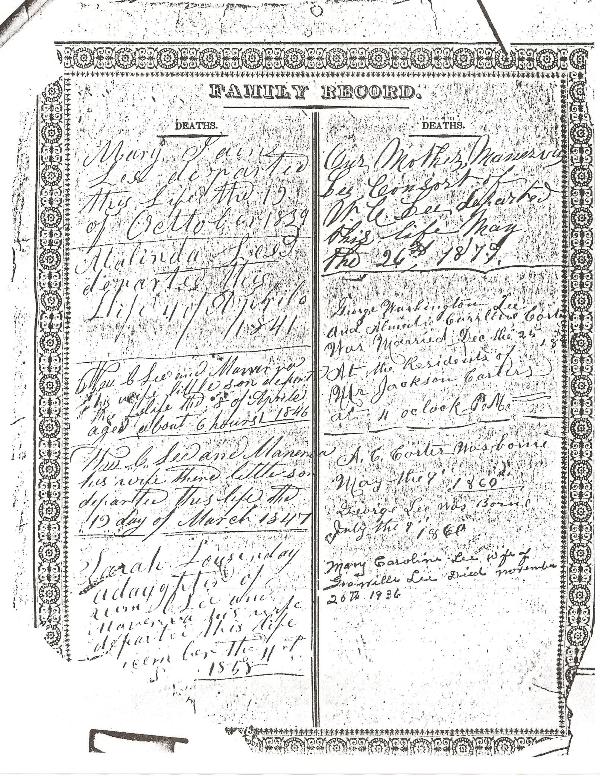 FAMILY RECORD.
DEATHS.
Mary Jane
Lee departed
this Life the 19
of Octtober 1839
Malinda Lee
departes this
Life 4 of Aprile
1841
Wm C Lee and Manerva
his wife little son depart
this life the 8 of Aprile
aged about 6 hours 1846
Wm C Lee and Manerva
his wife there little son
departed this life the
19 day of March 1847
Sarah Lousenday
a daughter of
Wm C Lee and
Manerva his wife
departed this life
the 4
1858
DEATHS.
Our Mother Manerva
Lee Consort of
W. C. Lee departed
this life May
the 26th 1879.
George Washington Lee
and Carrline Carter
Was Married Dec the 25 18
At the Residents of
Mr Jackson Carters
at 4 oclock P.M.
A. C. Carter Was borne
May the 9 1860
George Lee was Borne
July the 9 1860
Mary Caroline Lee wife of
Granville Lee Died november
26th 1936